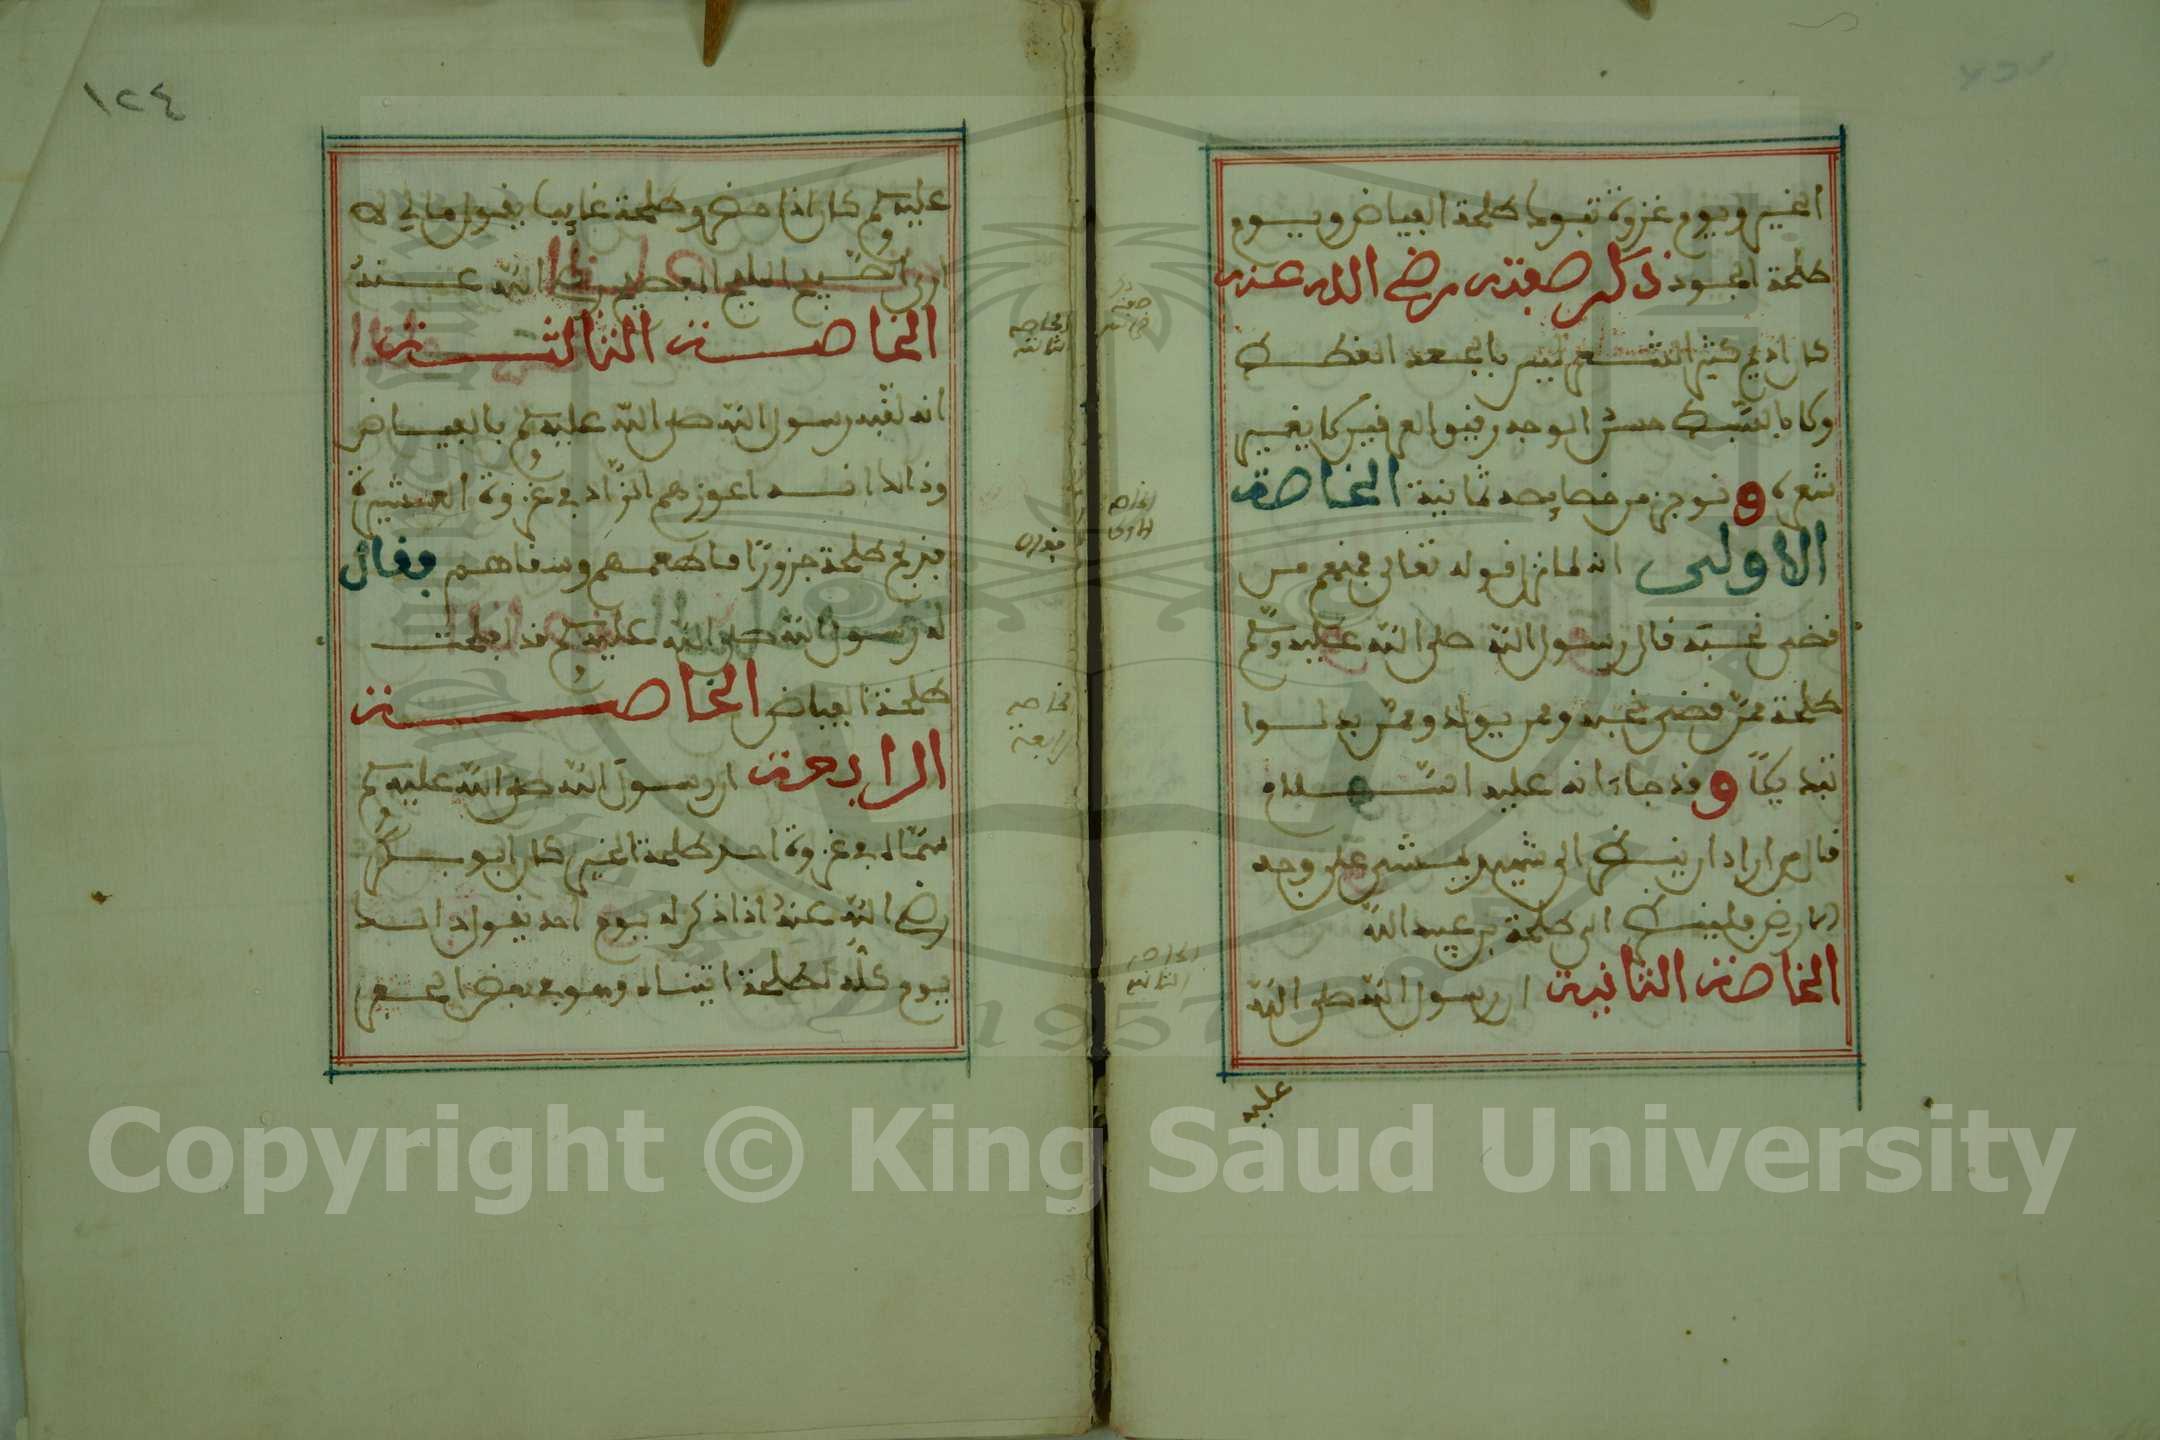 الخير ويوم غزوة تبوك طلحة الفياض ويوم
طلحة الجود ذكر صفته رضي الله عنه
كان ادم كثير الشعر ليس بالجعد القطط
ولا بالسبط حسن الوجه رقيق العرنين لا يغير
شعره و نوجز من خصايصه ثمانية الخاصة
الاولى انه لما نزل قوله تعالى فمنهم من
قضى نحبه قال رسول الله صلى الله عليه وسلم
طلحة ممن قضى نحبه وممن يبدل وممن بدلوا
تبديلا و قد جاء انه عليه السلام
قال من اراد ان ينظر الى شهيد يمشي على وجه
الارض فلينظر الى طلحة بن عبيد الله
الخاصة الثانية ان رسول الله صلى الله
عليه
الخاصة
الاولى
الخاصة
الثانية
١٢٤
عليه وسلم كان اذا حضر وطلحة غايبا يقول مالي لا
ارى الصبيح المليح الفصيح رضي الله عنه
الخاصة الثالثة
انه لقبه رسول الله صلى الله عليه وسلم بالفياض
وذلك انه اعوزهم الزاد في غزوة العشيرة
فنحر طلحة جزورا فاطعمهم وسقاهم فقال
له رسول الله صلى الله عليه وسلم قد افلحت
طلحة الفياض الخاصة
الرابعة ان رسول الله صلى الله عليه وسلم
سماه في غزوة احد طلحة الخير كان ابو بكر
رضي الله عنه اذا ذكر له يوم احد يقول ذلك
يوم كله لطلحة اتيناه وهو في بعض الحفر
الخاصة
الثالثة
خاصة
رابعة
Copyright © King Saud University
1957